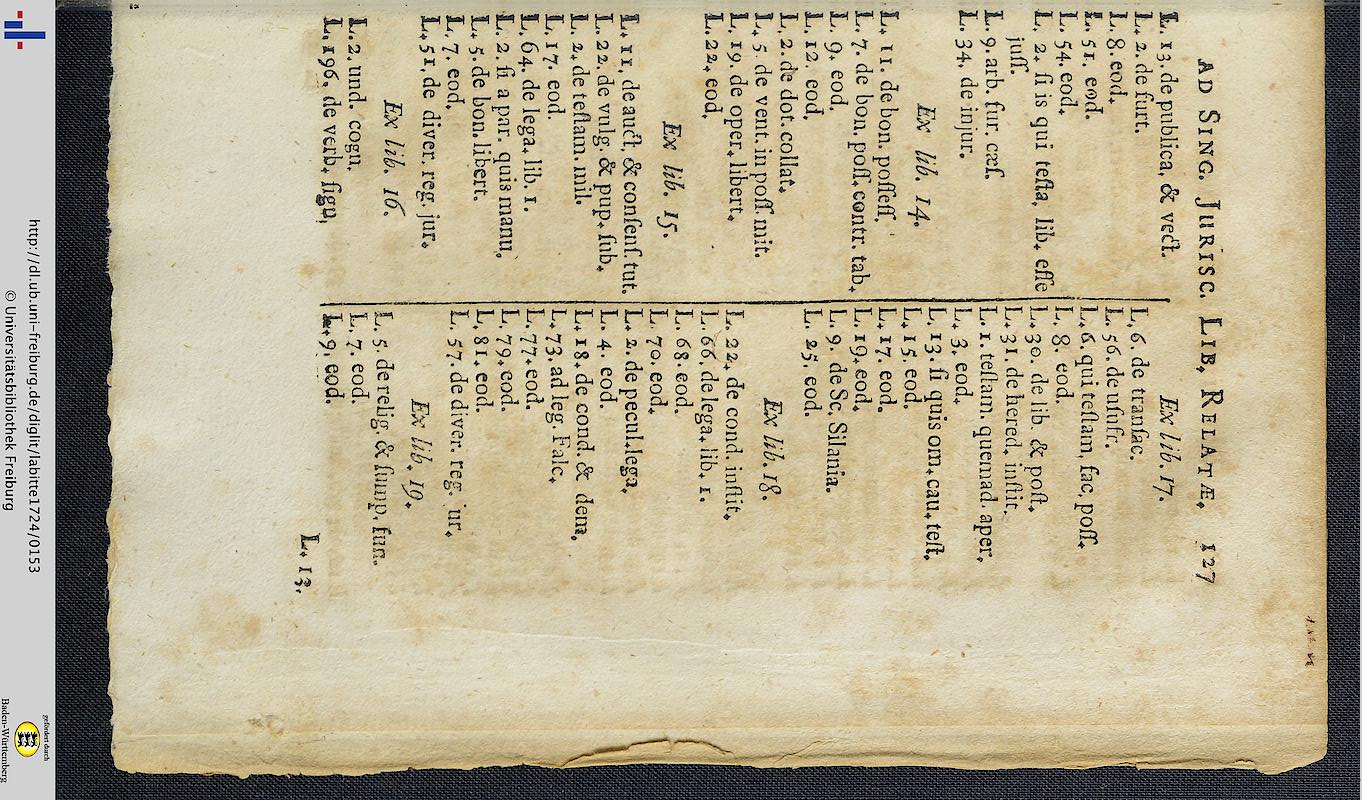 AD SING. JURISC. LIB. RELATÆ. 127
L. 13. de publica. & vect.
L. 2. de furt.
L. 8. eod.
L. 51. eod.
L. 54. eod.
L. 2. ſi is qui teſta. lib. eſſe
juſſ.
L. 9. arb. fur. cæſ.
L. 34. de injur.
Ex lib. 14.
L. 11. de bon. poſſeſſ.
L. 7. de bon. poſſ. contr. tab.
L. 9. eod.
L. 12. eod.
L. 2. de dot. collat.
L. 5. de vent. in poſſ. mit.
L. 19. de oper. libert.
L. 22. eod.
Ex lib. 15.
L. 11. de auct. & conſenſ. tut.
L. 22. de vulg. & pup. ſub.
L. 2. de teſtam. mil.
L. 17. eod.
L. 64. de lega. lib. 1.
L. 2. ſi a par. quis manu.
L. 5. de bon. libert.
L. 7. eod.
L. 51. de diver. reg. jur.
Ex lib. 16.
L. 2. und. cogn.
L. 196. de verb. ſign.
Ex lib. 17.
L. 6. de tranſac.
L. 56. de uſufr.
L. 6. qui teſtam. fac. poſſ.
L. 8. eod.
L. 30. de lib. & poſt.
L. 31. de hered. inſtit.
L. 1. teſtam. quemad. aper.
L. 3. eod.
L. 13. ſi quis om. cau. teſt.
L. 15. eod.
L. 17. eod.
L. 19. eod.
L. 9. de Sc. Silania.
L. 25. eod.
Ex lib. 18.
L. 22. de cond. inſtit.
L. 66. de lega. lib. 1.
L. 68. eod.
L. 70. eod.
L. 2. de pecul. lega.
L. 4. eod.
L. 18. de cond. & dem.
L. 73. ad leg. Falc.
L. 77. eod.
L. 79. eod.
L. 81. eod.
L. 57. de diver. reg. ur.
Ex lib. 19.
L. 5. de relig. & ſump. fun.
L. 7. eod.
L. 9. eod.
L. 13.
http://dl.ub.uni-freiburg.de/diglit/labitte1724/0153
© Universitätsbibliothek Freiburg
gefördert durch
Baden-Württemberg